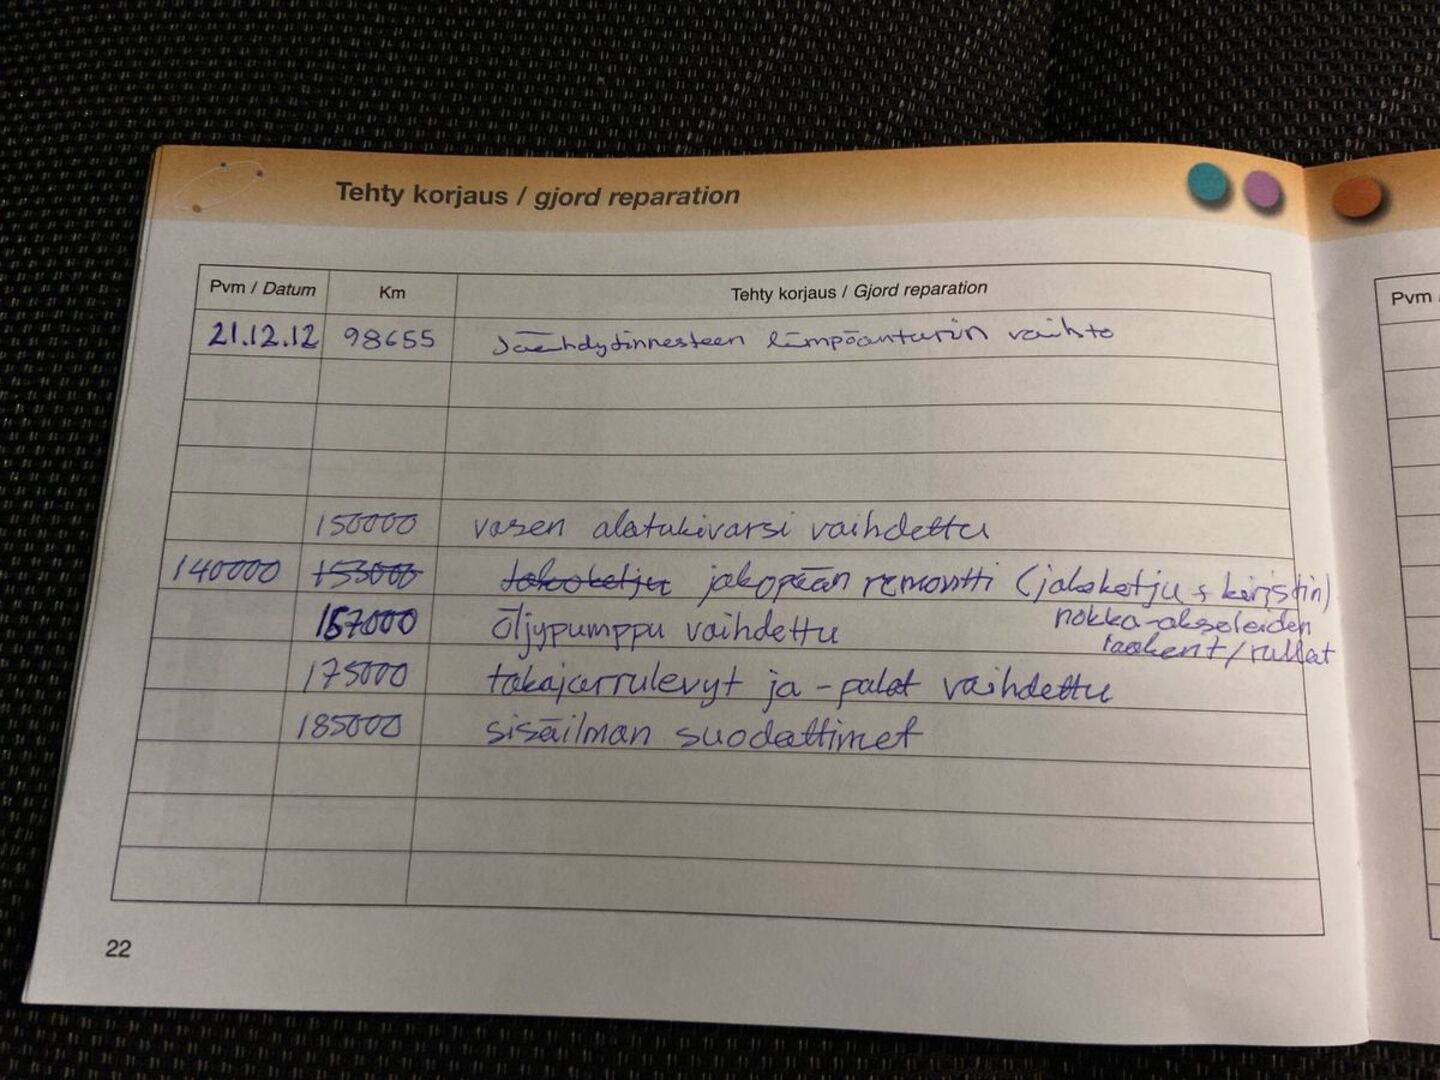 Tehty korjaus / gjord reparation
Pvm / Datum Km Tehty korjaus / Gjord reparation
Pvm
21.12.12 98655 Jäähdytinnesteen lämpöanturin vaihto
150000 vasen alatukivarsi vaihdettu
140000 153000 Jakoketju jakopään remontti (jakoketju + kiristin)
nokka-akseleiden
laakerit/rullat
157000 Öljypumppu vaihdettu
175000 takajarrulevyt ja -palat vaihdettu
185000 sisäilman suodattimet
22